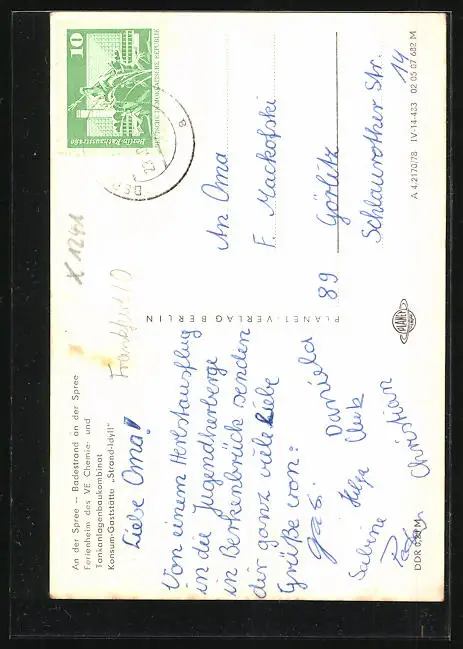 An der Spree — Badestrand an der Spree
Ferienheim des VE Chemie- und
Tankanlagenbaukombinat
Konsum-Gaststätte „Strand-Idyll"
X 1241
Frankfurt/O
Liebe Oma!
Von einem Herbstausflug
in die Jugendherberge
in Berkenbrück senden
dir ganz viele Liebe
Grüße von:
Daniela
Helga
Sabine
Christian
DDR M
PLANET-VERLAG BERLIN
PLANET
10
DEUTSCHE DEMOKRATISCHE REPUBLIK
Berlin · Rathausstraße
An Oma
F. Mackofski
89 Görlitz
Schlaurother Str.
14
A 4.2170/78 IV-14-483 02 05 07 682 M